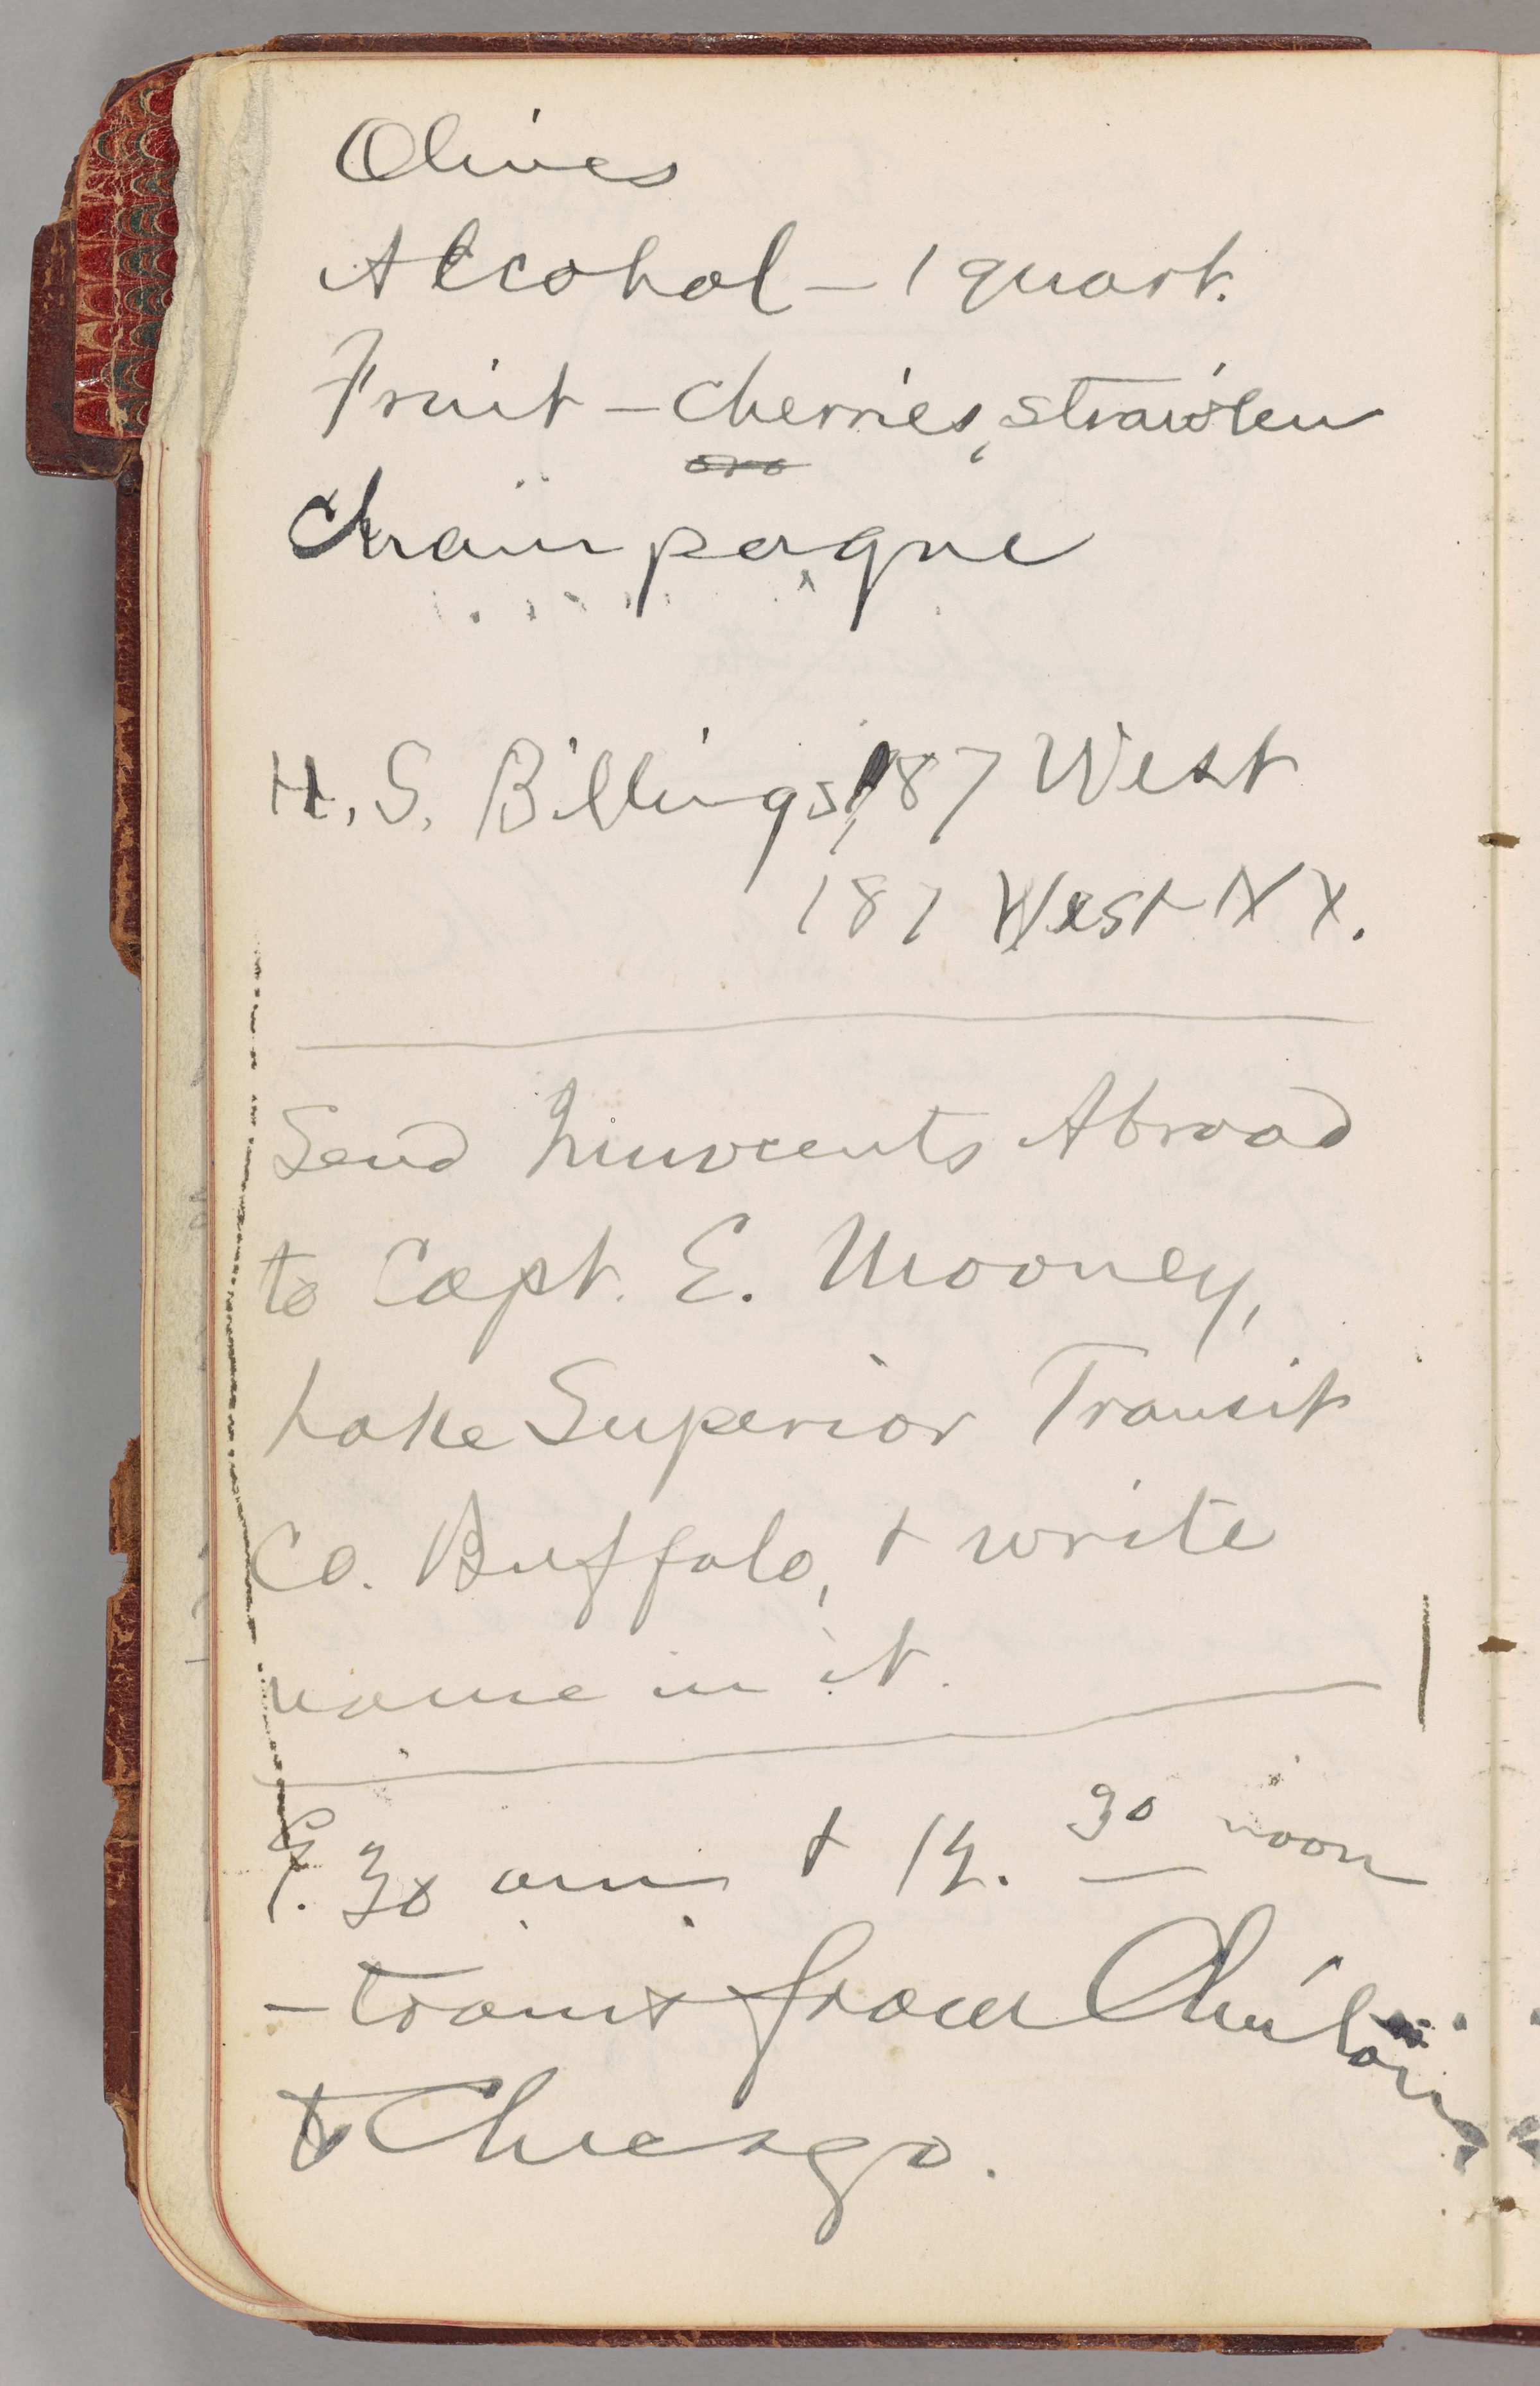 Olives
Alcohol – 1 quart.
Fruit – Cherries, strawber
Champagne
H. S. Billings, 187 West
187 West N Y.
Send Innocents Abroad
to Capt. E. Mooney,
Lake Superior Transit
Co. Buffalo, + write
name in it.
30 am + 12. 30 noon
– trains from Clinton
to Chicago.